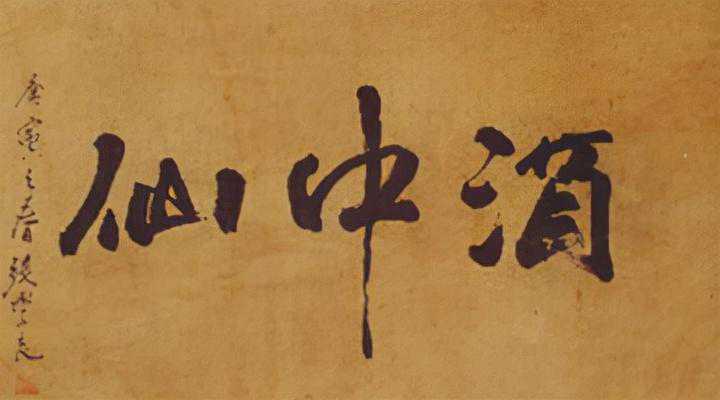 酒中仙
庚寅之春 張學亮